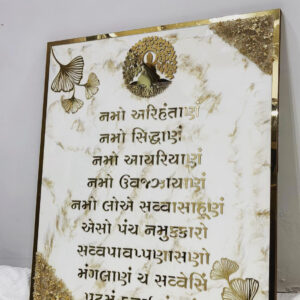 નમો અરિહંતાણં
નમો સિદ્ધાણં
નમો આયરિયાણં
નમો ઉવજઝાયાણં
નમો લોએ સવ્વસાહૂણં
એસો પંચ નમુક્કારો
સવ્વપાવપ્પણાસણો
મંગલાણં ચ સવ્વેસિં